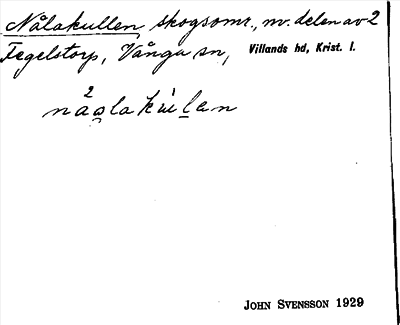 Nålakullen skogsomr., nv. delen av 2
Tegelstorp, Vånga sn, Villands hd, Krist. l.
2
nåo̰lakùl̲en
JOHN SVENSSON 1929